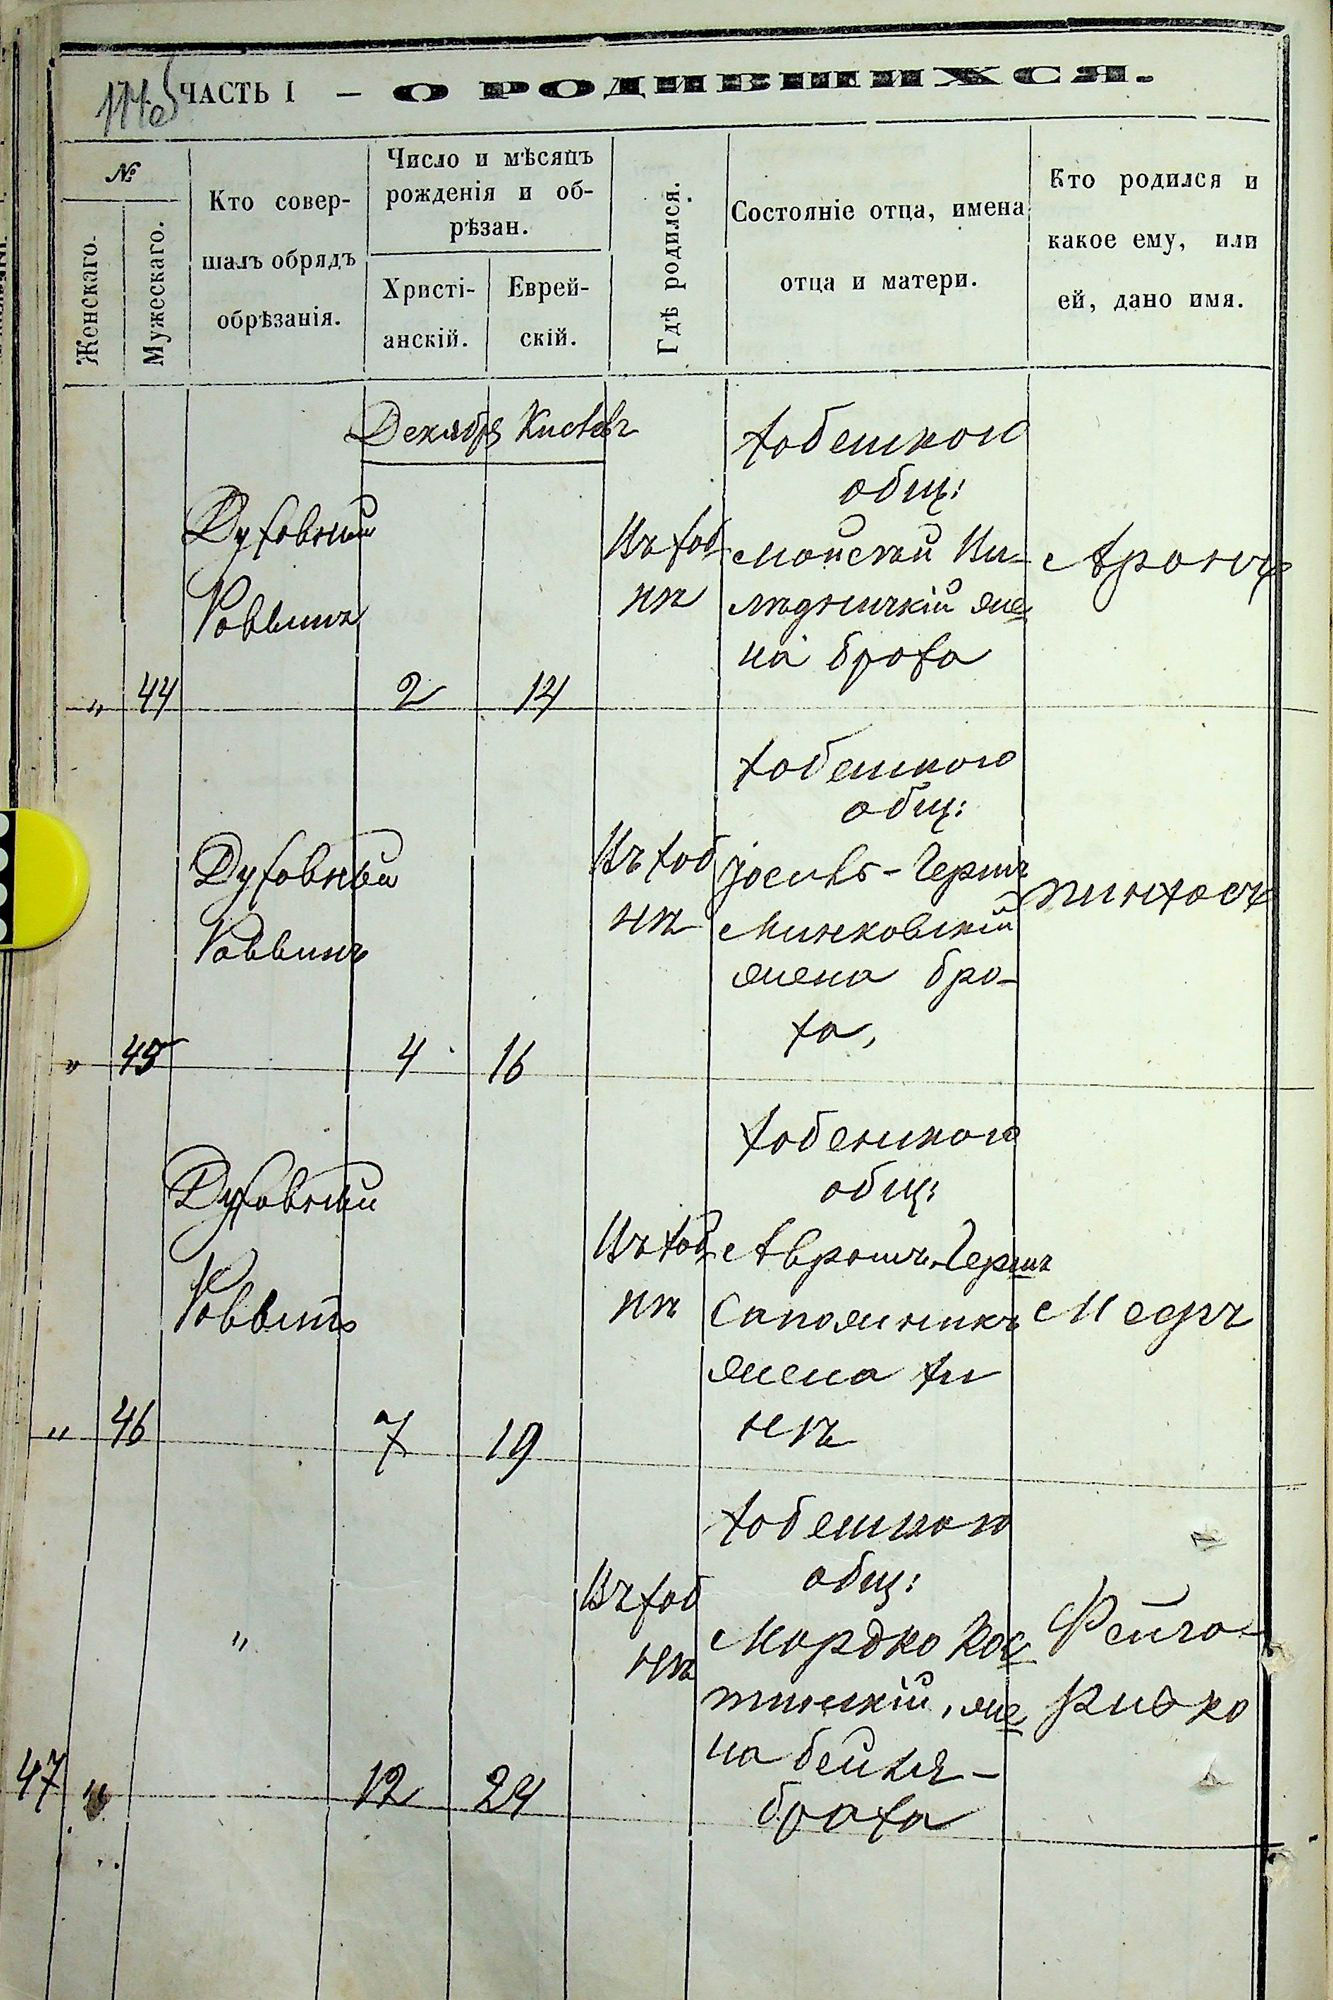 114об
ЧАСТЬ I — О РОДИВШИХСЯ.
№
Женскаго.
Мужескаго.
Кто совер-
шалъ обрядъ
обрѣзанія.
Число и мѣсяцъ
рожденія и об-
рѣзан.
Христі-
анскій.
Еврей-
скій.
Гдѣ родился.
Состояніе отца, имена
отца и матери.
Кто родился и
какое ему, или
ей, дано имя.
Декабрь Кислевъ
„ 44
Духовный
Раввинъ
2 14
Въ Хоб
нѣ
Хобенскаго
общ:
на Броха
Аронъ
„ 45
Духовный
Раввинъ
4 16
Въ Хоб
нѣ
Хобенскаго
общ:
Іосифъ-Гершъ
Минковскій
жена Бро-
ха,
Пинхосъ
„ 46
Духовный
Раввинъ
7 19
Въ Хоб
нѣ
Хобенскаго
общ:
Аврамъ-Гершъ
Сапожникъ
жена Хи
Мееръ
47 „
„
12 24
Въ Хоб
нѣ
Хобенскаго
общ:
Мордко
жe
на Бейля-
Броха
Фейга-
Ривка